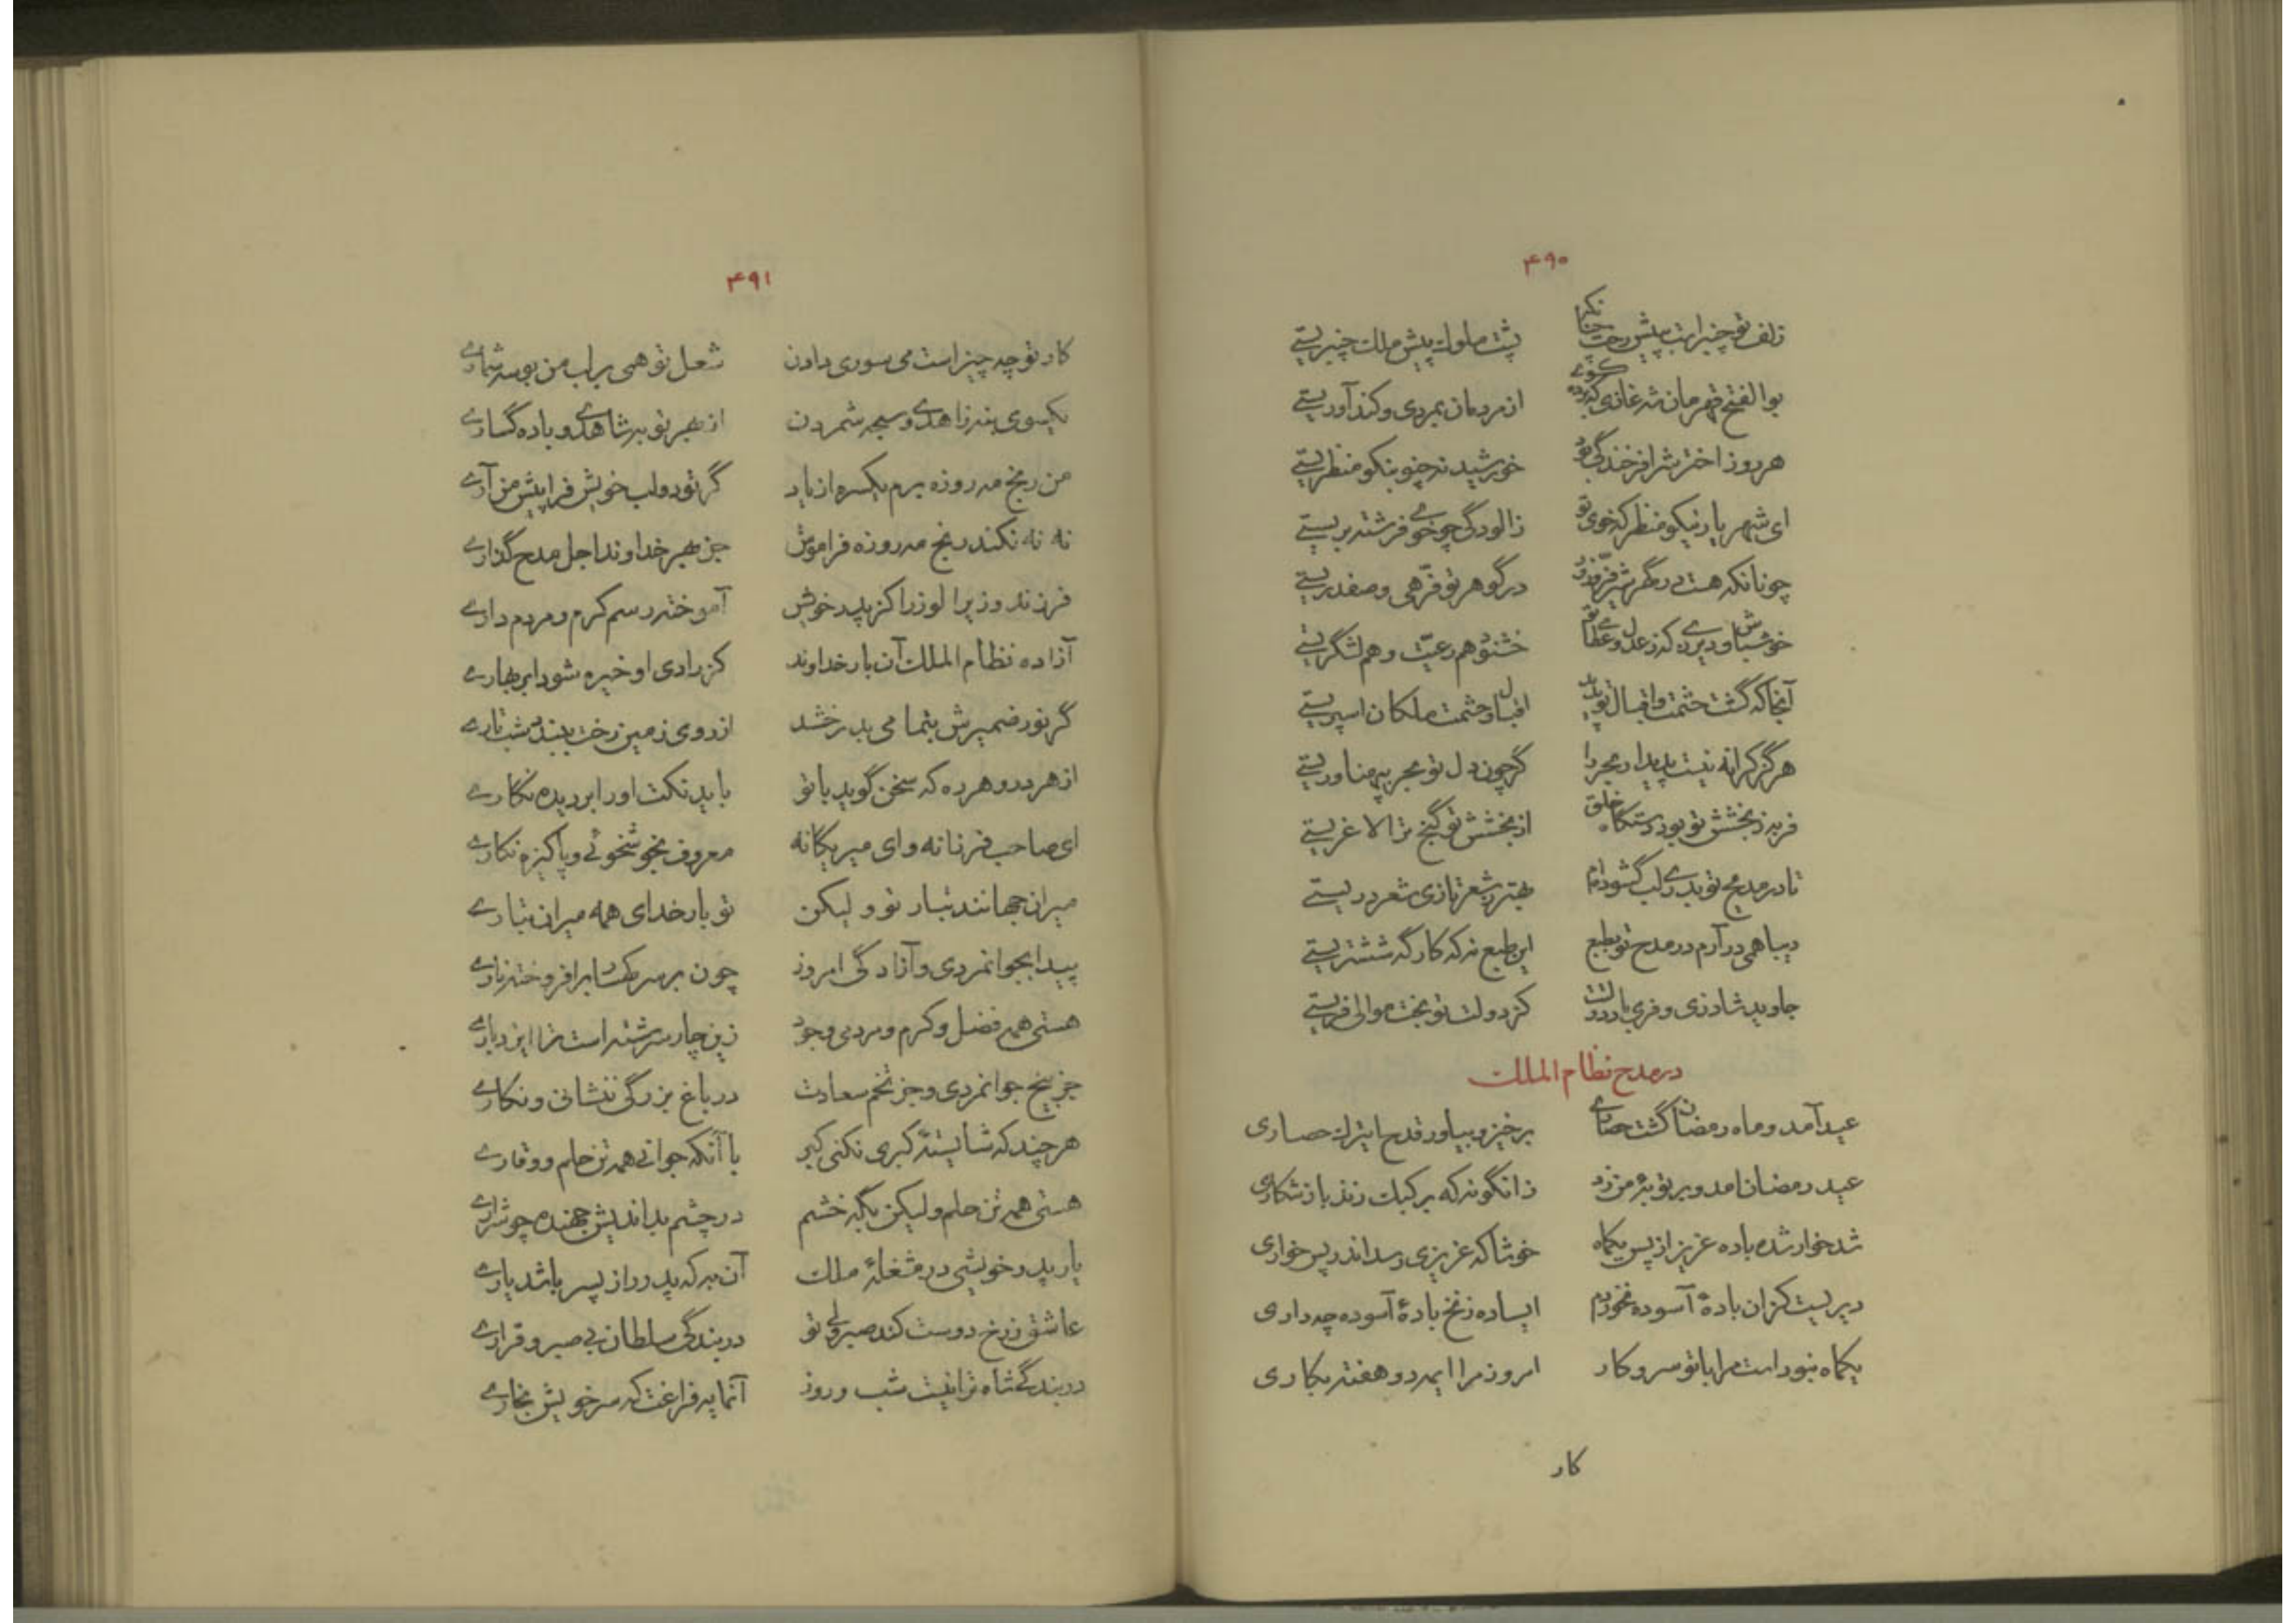 ۴۹۰
زلف تو چنبر است به پیش رخت چنانکه پشت ملوک پیش ملک چنبریستی
بوالفتح قهرمان شه غازی که گوئی از مردمان بمردی و کندآوریستی
هر روز اخترش را فرخندگی بود خورشید نه چنو بنکو منظریستی
ای شهریار نیکو منظر که خوی تو ز الودگی چو خوی فرشته بریستی
چونانکه هست در گهرش فر ایزدی در گوهر تو فرهی و صفدریستی
خوش باش و دیر زی که ز عدل و عطای تو خشنود هم رعیت و هم لشگریستی
آنجا که گشت حشمت و اقبال تو پدید اقبال و حشمت ملکان اسپریستی
هرگز کرانه نیست پدیدار مجر را گر چون دل تو بحر به پهناوریستی
فربه ز بخشش تو بود دستگاه خلق از بخشش تو گنج ترا لاغریستی
تا در مدیح تو بدری لب گشوده‌ام بهتر ز شعر تازی شعر دریستی
دیبا همی در آرم در مدح تو بطبع این طبع نه که کارگه ششتریستی
جاوید شاد زی و فری با دولت کز دولت تو بخت موالی فریستی
در مدح نظام الملک
عید آمد و ماه رمضان گشت حصاری برخیز و بیاور قدح ایترک حصاری
عید رمضان امد و بر توبهٔ من زد زانگونه که بر کبک زند باز شکاری
شد خوار شده باده عزیز از پس یکماه خوشا که عزیزی رسد اندر پس خواری
دیریست کزان بادهٔ آسوده نخوردم ایساده زنخ بادهٔ آسوده چه داری
یکماه نبود است مرا با تو سر و کار امروز مرا ایمه دو هفته بکاری
کار
۴۹۱
کار تو چه چیز است می سوری دادن شغل تو همی بر لب من بوسه شماری
یکسوی بنه زاهدی و سبحه شمردن از بهر تو به شاهدی و باده گساری
من رنج مه روزه برم یکسره از یاد گر تو دو لب خویش فرا پیش من آری
نه نه نکند رنج مه روزه فراموش جز بهر خداوند اجل مدح گذاری
فرزند وزیر الوزرا کز پدر خویش آموخته رسم کرم و مردم داری
آزاده نظام الملک آن بار خداوند کز رادی او خیره شود ابر بهاری
گر نور ضمیرش بتمامی بدرخشد از روی زمین رخت ببندد شب تاری
از هر در و هر ره که سخن گوید با تو باید نکت او را بر دیده نگاری
ای صاحب فرزانه و ای میر یگانه معروف بخوشخوئی و پاکیزه نگاری
میران جهانند تبار تو و لیکن تو بار خدای همه میران تباری
پیدا بجوانمردی و آزادگی امروز چون بر سر کهسار بر افروخته ناری
هستی همه فضل و کرم و مردمی وجود زین چار سرشته است ترا ایزد باری
جز بیخ جوانمردی و جز تخم سعادت در باغ بزرگی ننشانی و نکاری
هر چند که شایستهٔ کبری نکنی کبر با آنکه جوانی همه تن حلم و وقاری
هستی همه تن حلم و لیکن بگه خشم در چشم بداندیش جهنده چو شراری
یار پدر خویشی در مشغلهٔ ملک آن به که پدر را ز پسر باشد یاری
عاشق ز رخ دوست کند صبر ولی تو در بندگی سلطان بی صبر و قراری
در بندگی شاه ترا نیست شب و روز آنمایه فراغت که سر خویش بخاری